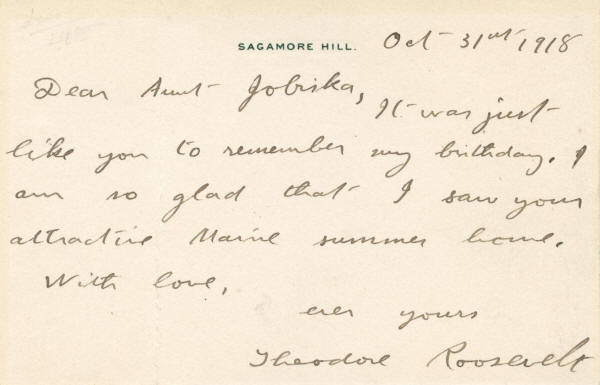 SAGAMORE HILL. Oct 31st 1918
Dear Aunt Jobiska,
It was just
like you to remember my birthday. I
am so glad that I saw your
attractive Maine summer home.
With love,
ever yours
Theodore Roosevelt